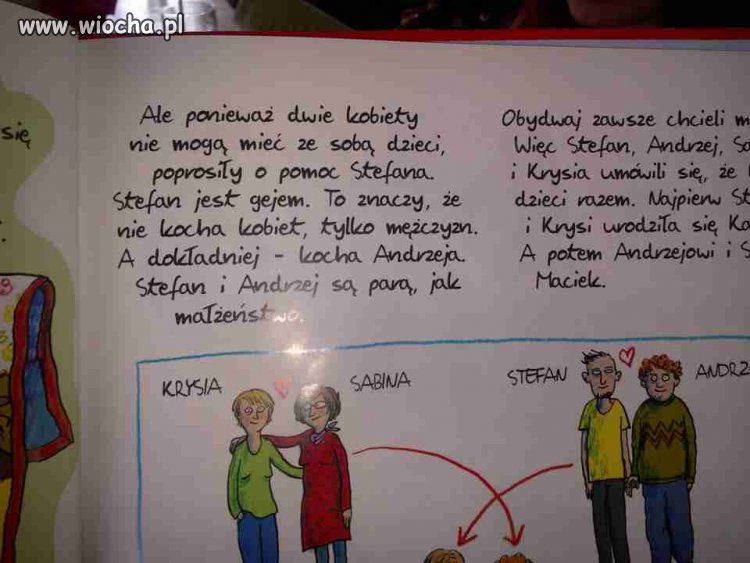 www.wiocha.pl
się
Ale ponieważ dwie kobiety
nie mogą mieć ze sobą dzieci,
poprosiły o pomoc Stefana.
Stefan jest gejem. To znaczy, że
nie kocha kobiet, tylko mężczyzn.
A dokładniej - kocha Andrzeja.
Stefan i Andrzej są parą, jak
małżeństwo.
Obydwaj zawsze chcieli
Więc Stefan, Andrzej,
i Krysia umówili się, że
dzieci razem. Najpierw
i Krysi urodziła się
A potem Andrzejowi i
Maciek.
KRYSIA
SABINA
STEFAN